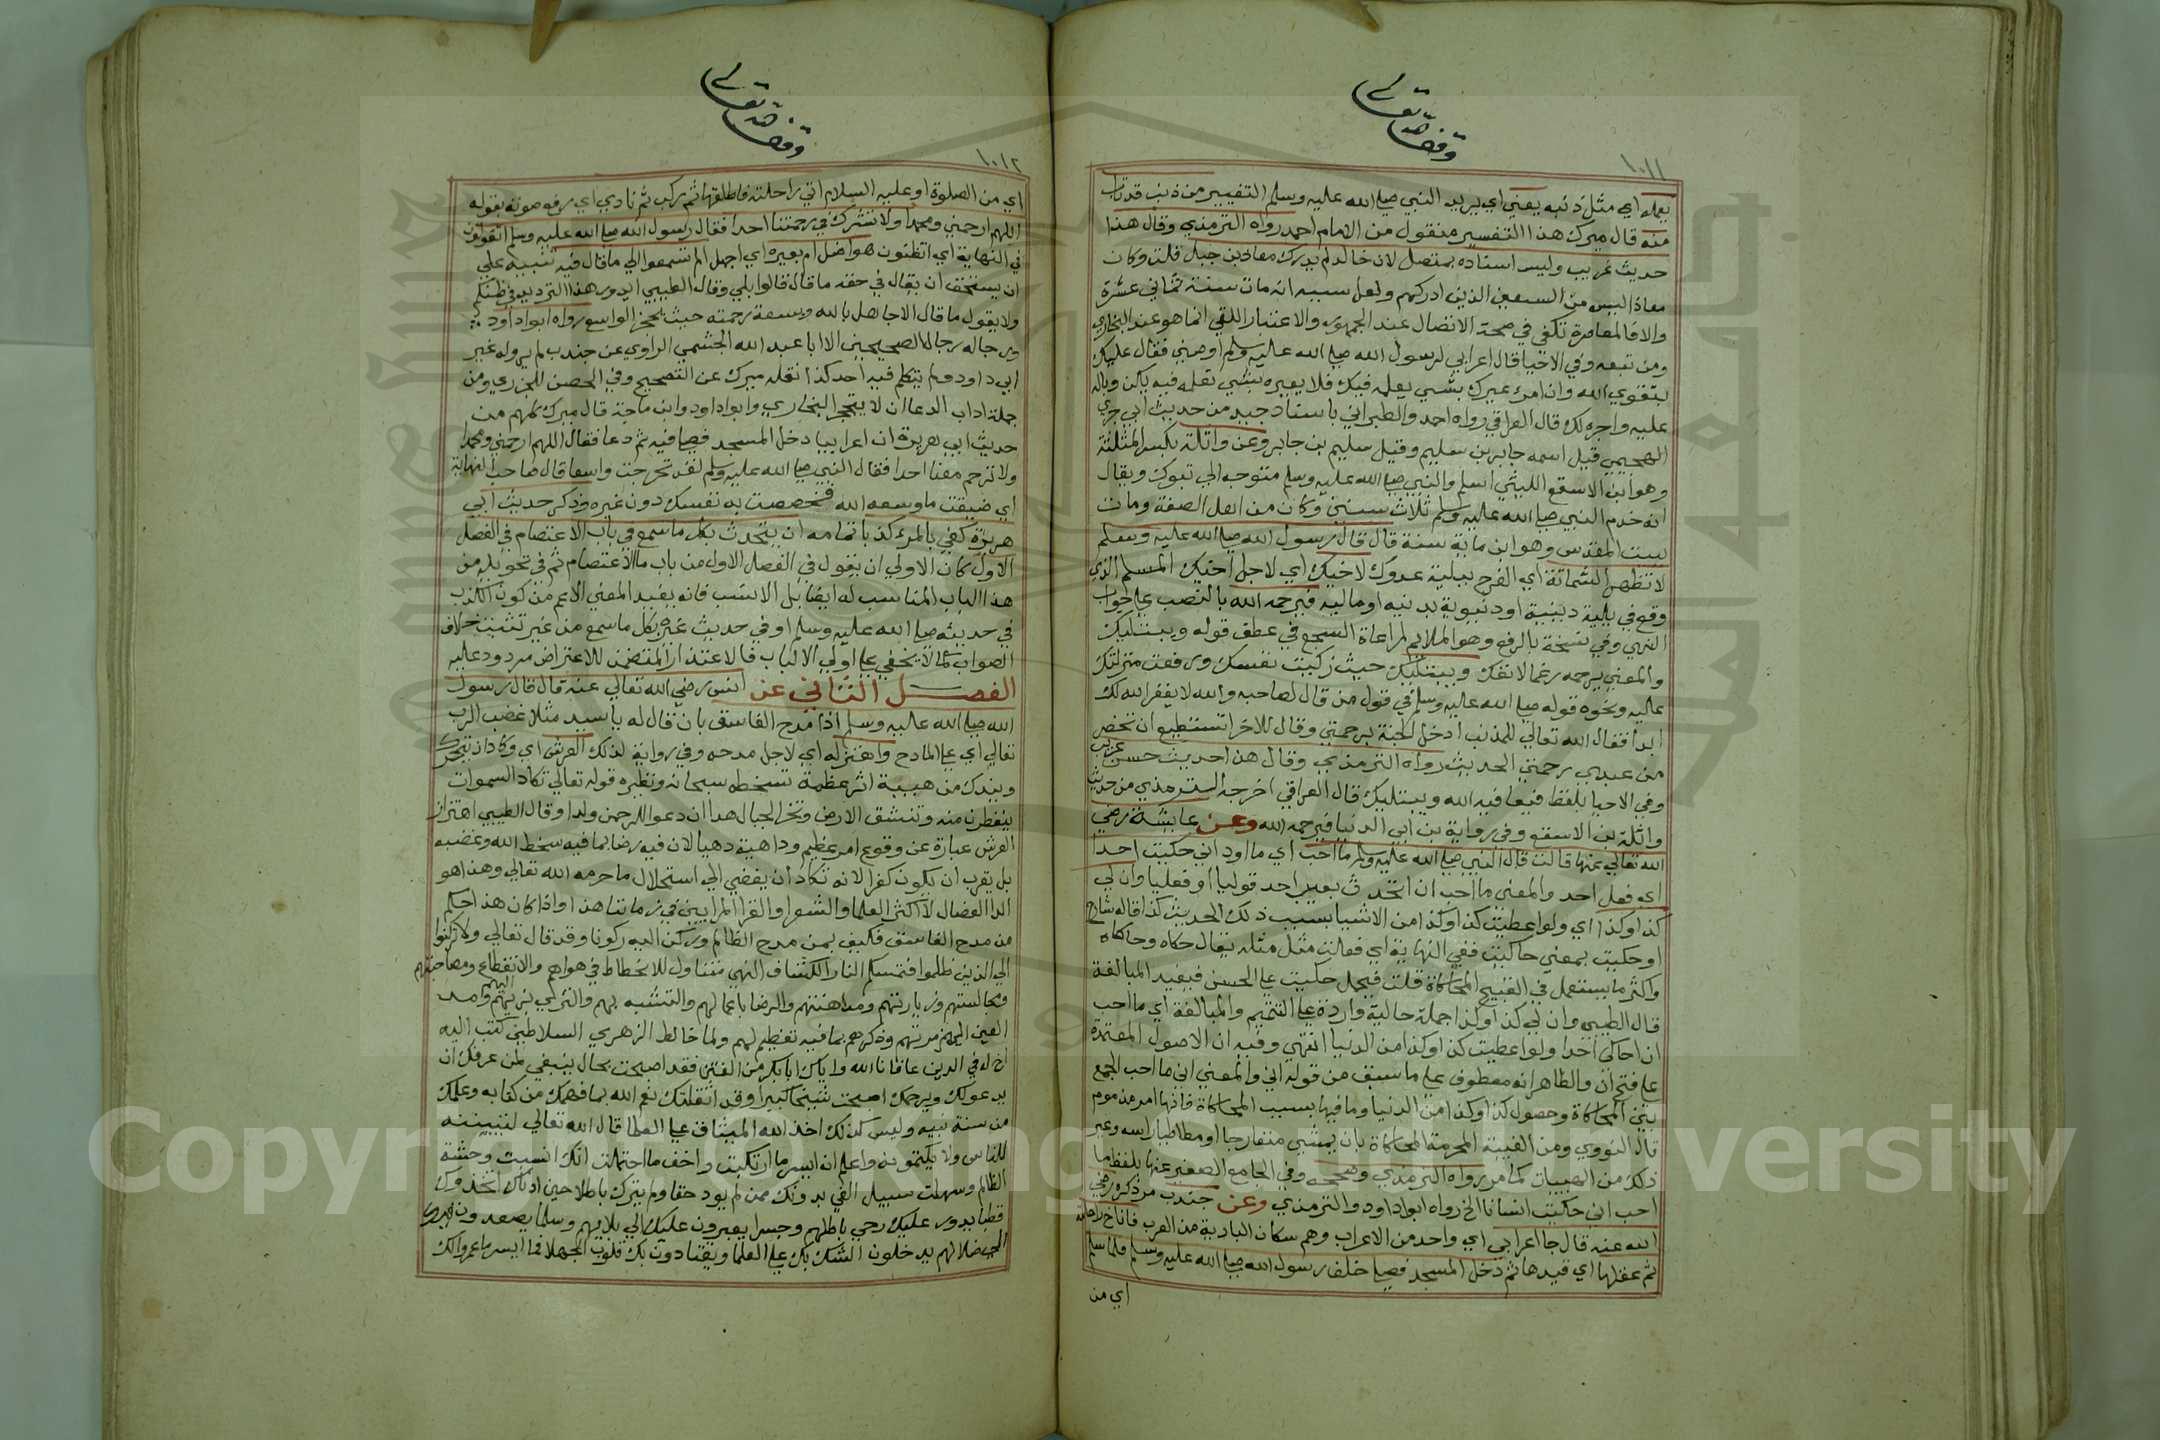 وقف لله تعالى
١٠١١
يعمله اي مثل ذنبه يعني اي يريد النبي صلى الله عليه وسلم التعيير من ذنب قد تاب
منه قال ميرك هذا التفسير منقول من الامام احمد رواه الترمذي وقال هذا
حديث غريب وليس اسناده بمتصل لان خالدا لم يدرك معاذ بن جبل قلت وكان
معاذا ليس من السبعين الذين ادركهم ولعل سببه انه مات سنة ثماني عشرة
والا فالمعاصرة تكفي في صحة الاتصال عند الجمهور والاعتبار اللقي انما هو عند البخاري
ومن تبعه وفي الاحيا قال اعرابي لرسول الله صلى الله عليه وسلم اوصني فقال عليك
بتقوى الله وان امرء عيرك بشيء يعلمه فيك فلا يعيره بشيء تعلمه فيه يكن وباله
عليه واجره لك قال العراقي رواه احمد والطبراني باسناد جيد من حديث ابي جري
الهجيمي قيل اسمه جابر بن سليم وقيل سليم بن جابر وعن واثلة بكسر المثلثة
وهو ابن الاسقع الليثي اسلم والنبي صلى الله عليه وسلم متوجه الى تبوك ويقال
انه خدم النبي صلى الله عليه وسلم ثلاث سنين وكان من اهل الصفة ومات
ببيت المقدس وهو ابن ماية سنة قال قال رسول الله صلى الله عليه وسلم
لا تظهر الشماتة اي الفرح ببلية عدوك لاخيك اي لاجل اخيك المسلم الذي
وقع في بلية دينية او دنيوية بدنيه او ماليه فيرحمه الله بالنصب على جواب
النهي وفي نسخة بالرفع وهو الملايم لمراعاة السجع في عطف قوله ويبتليك
والمعنى يرحمه رغما لانفك ويبتليك حيث زكيت نفسك ورفعت منزلتك
عليه ونحوه قوله صلى الله عليه وسلم في قول من قال لصاحبه والله لا يغفر الله لك
ابدا فقال الله تعالى للمذنب ادخل الجنة برحمتي وقال للاخر اتستطيع ان تحضر
من عبدي رحمتي الحديث رواه الترمذي وقال هذا حديث حسن غريب
وفي الاحيا بلفظ فيعافيه الله ويبتليك قال العراقي اخرجه الترمذي من حديث
واثلة بن الاسقع وفي رواية بن ابي الدنيا فيرحمه الله وعن عايشة رضي
الله تعالى عنها قالت قال النبي صلى الله عليه وسلم ما احب اي ما اود اني حكيت احدا
اي فعل احد والمعنى ما احب ان اتحدث بعيب احد قوليا او فعليا وان لي
كذا وكذا اي ولو اعطيت كذا وكذا من الاشيا بسبب ذلك الحديث كذا قاله شارح
او حكيت بمعنى حاكيت ففي النهاية اي فعلت مثل مثله يقال حكاه وحاكاه
واكثر ما يستعمل في القبيح المحاكاة قلت فيحمل حكيت على الحسن فيفيد المبالغة
قال الطيبي وان لي كذا وكذا جملة حالية واردة على التتميم والمبالغة اي ما احب
ان احاكي احدا ولو اعطيت كذا وكذا من الدنيا انتهى وفيه ان الاصول المعتمدة
على فتح ان والظاهر انه معطوف على ما سبق من قوله اني والمعنى اني ما احب الجمع
بين المحاكاة وحصول كذا وكذا من الدنيا وما فيها بسبب المحاكاة فانها امر مذموم
قال النووي ومن الغيبة المحرمة المحاكاة بان يمشي متعارجا او مطاطيا راسه وغير
ذلك من الهيئات كما مر رواه الترمذي وصححه وفي الجامع الصغير عنها بلفظ ما
احب اني حكيت انسانا الخ رواه ابو داود والترمذي وعن جندب مر ذكره رضي
الله عنه قال جا اعرابي اي واحد من الاعراب وهم سكان البادية من العرب فاناخ راحلته
ثم عقلها اي قيدها ثم دخل المسجد فصلى خلف رسول الله صلى الله عليه وسلم فلما سلم
اي من
وقف لله تعالى
١٠١٢
اي من الصلوة او عليه السلام اتى راحلته فاطلقها ثم ركب ثم نادى اي رفع صوته بقوله
اللهم ارحمني ومحمدا ولا تشرك في رحمتنا احدا فقال رسول الله صلى الله عليه وسلم اتقولون
في النهاية اي اتظنون هو اضل ام بعيره اي اجهل الم تسمعوا الى ما قال فيه تنبيه على
ان يستحق ان يقال في حقه ما قال قالوا بلى وقال الطيبي ايدور هذا الترديد في ظنكم
ولا يقول ما قال الا جاهل بالله وبسعة رحمته حيث يحجر الواسع رواه ابو داود
ورجاله رجال الصحيحين الا ابا عبد الله الجشمي الراوي عن جندب لم يرو له غير
ابي داود ولم يتكلم فيه احد كذا نقله ميرك عن التصحيح وفي الحصن للجزري ومن
جملة اداب الدعا ان لا يتحجر البخاري وابو داود وابن ماجة قال ميرك كلهم من
حديث ابي هريرة ان اعرابيا دخل المسجد فصلى فيه ثم دعا فقال اللهم ارحمني ومحمدا
ولا ترحم معنا احدا فقال النبي صلى الله عليه وسلم لقد تحجرت واسعا قال صاحب النهاية
اي ضيقت ما وسعه الله فخصصت به نفسك دون غيره وذكر حديث ابي
هريرة كفى بالمرء كذبا تمامه ان يتحدث بكل ما سمع في باب الاعتصام في الفصل
الاول كان الاولى ان يقول في الفصل الاول من باب ما الاعتصام ثم في تحويله من
هذا الباب المناسب له ايضا بل الانسب فانه يفيد المعنى الاعم من كون الكذب
في حديثه صلى الله عليه وسلم او في حديث غيره بكل ما سمع من غير تثبت خلاف
الصواب كما لا يخفى على اولي الالباب فالاعتذار المتضمن للاعتراض مردود عليه
الفصل الثاني عن انس رضي الله تعالى عنه قال قال رسول
الله صلى الله عليه وسلم اذا مدح الفاسق بان قال له يا سيد مثلا غضب الرب
تعالى اي على المادح واهتز له اي لاجل مدحه وفي رواية لذلك العرش اي وكاد ان يتحرك
ويندك من هيبة اثر عظمة سخطه سبحانه ونظيره قوله تعالى تكاد السموات
يتفطرن منه وتنشق الارض وتخر الجبال هدا ان دعوا للرحمن ولدا وقال الطيبي اهتزاز
العرش عبارة عن وقوع امر عظيم وداهية دهيا لان فيه رضا بما فيه سخط الله وغضبه
بل يقرب ان يكون كفرا لانه تكاد ان يفضي الى استحلال ما حرمه الله تعالى وهذا هو
الدا العضال لاكثر العلما والشعرا والقرا المرايين في زماننا هذا واذا كان هذا حكم
من مدح الفاسق فكيف بمن مدح الظالم وركن اليه ركونا وقد قال تعالى ولا تركنوا
الى الذين ظلموا فتمسكم النار الكشاف النهي متناول للانحطاط في هواهم والانقطاع اليهم ومصاحبتهم
ومجالستهم وزيارتهم ومداهنتهم والرضا باعمالهم والتشبه بهم والتزيي بزيهم ومد
العين الى زهرتهم وذكرهم بما فيه تعظيم لهم ولما خالط الزهري السلاطين كتب اليه
اخ له في الدين عافانا الله واياك ابا بكر من الفتن فقد اصبحت بحال ينبغي لمن عرفك ان
يدعو لك ويرحمك اصبحت شيخا كبيرا وقد اثقلتك نعم الله بما فهمك من كتابه وعلمك
من سنة نبيه وليس كذلك اخذ الله الميثاق على العلما قال الله تعالى لتبيننه
للناس ولا يكتمونه واعلم انه ايسر ما ارتكبت واخف ما احتملت انك انست وحشة
الظالم وسهلت سبيل الغي بدنوك ممن لم يود حقا ولم يترك باطلا حين ادناك اتخذوك
قطبا يدور عليك رحى باطلهم وجسرا يعبرون عليك الى بلايهم وسلما يصعدون فيك
الى ضلالهم يدخلون الشك بك على العلما ويقتادون بك قلوب الجهلا فما ايسر ما عمروا لك
Copyright © King Saud University